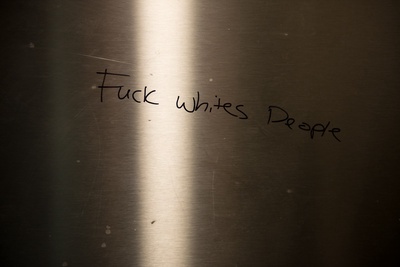 Fuck Whites Deaple